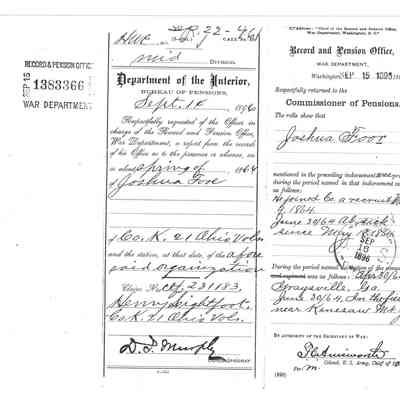 RECORD & PENSION OFFICE
SEP 15
1383366
WAR DEPARTMENT
Mid DIVISION.
Department of the Interior,
BUREAU OF PENSIONS,
Sept. 14, 1896
Respectfully requested of the Officer in
charge of the Record and Pension Office,
War Department, a report from the records
of his Office as to the presence or absence, on
or about spring of 1864
of Joshua Foor
of Co. K. 21 Ohio Vols
and the station, at that date, of the afore
said organization
231183,
Henry Lightfoot,
Co K. 21 Ohio Vols.
D. I. Murphy
Record and Pension Office,
WAR DEPARTMENT,
Washington, SEP 15 1896, 189
Respectfully returned to the
Commissioner of Pensions.
The rolls show that
Joshua Foor
mentioned in the preceding indorsement was
during the period named in that indorsement
as follows:
He joined Co a recruit
1864
June 30/64 Ab. sick
since May 1864
SEP
15
1896
During the period named the station of the
was as follows: Apr 30/64
Graysville, Ga.
June 30/64, In the field
near Kenesaw Mt
BY AUTHORITY OF THE SECRETARY OF WAR:
F C Ainsworth
Colonel, U. S. Army, Chief of
Per M.